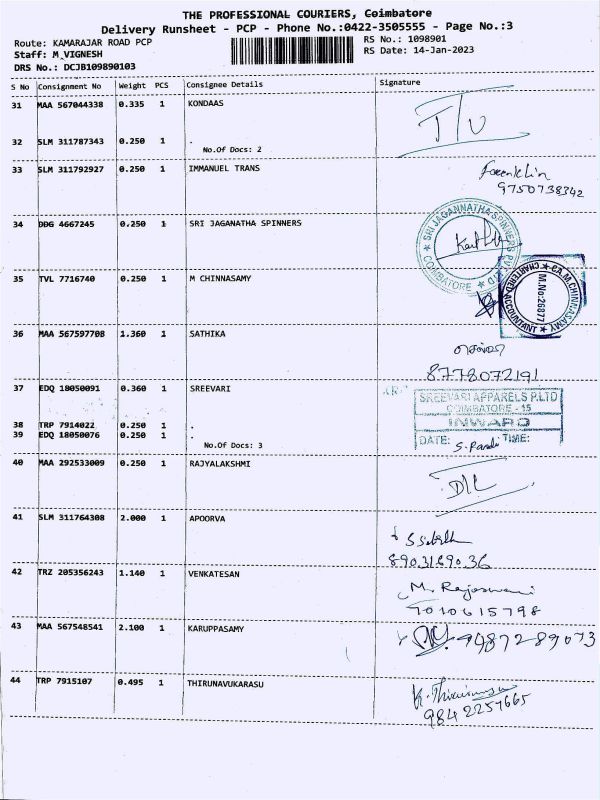 THE PROFESSIONAL COURIERS, Coimbatore
Delivery Runsheet - PCP - Phone No.:0422-3505555 - Page No.:3
Route: KAMARAJAR ROAD PCP
RS No.: 1098901
Staff: M_VIGNESH
RS Date: 14-Jan-2023
DRS No.: DCJB109890103
S No Consignment No Weight PCS Consignee Details Signature
31 MAA 567044338 0.335 1 KONDAAS
32 SLM 311787343 0.250 1 .
No.Of Docs: 2
33 SLM 311792927 0.250 1 IMMANUEL TRANS
9750738342
34 DDG 4667245 0.250 1 SRI JAGANATHA SPINNERS
SRI JAGANNATHA SPINNERS PVT LTD
COIMBATORE
35 TVL 7716740 0.250 1 M CHINNASAMY
CA. M. CHINNASAMY
M.No:26877
CHARTERED ACCOUNTANT
36 MAA 567597708 1.360 1 SATHIKA
8778072191
37 EDQ 18050091 0.360 1 SREEVARI
SREEVARI APPARELS P.LTD
COIMBATORE - 15
INWARD
DATE: S. Pandi TIME:
38 TRP 7914022 0.250 1 .
39 EDQ 18050076 0.250 1 .
No.Of Docs: 3
40 MAA 292533009 0.250 1 RAJYALAKSHMI
41 SLM 311764308 2.000 1 APOORVA
8903189036
42 TRZ 205356243 1.140 1 VENKATESAN
M. Rajeswari
7010615798
43 MAA 567548541 2.100 1 KARUPPASAMY
9487289073
44 TRP 7915107 0.495 1 THIRUNAVUKARASU
9842257665